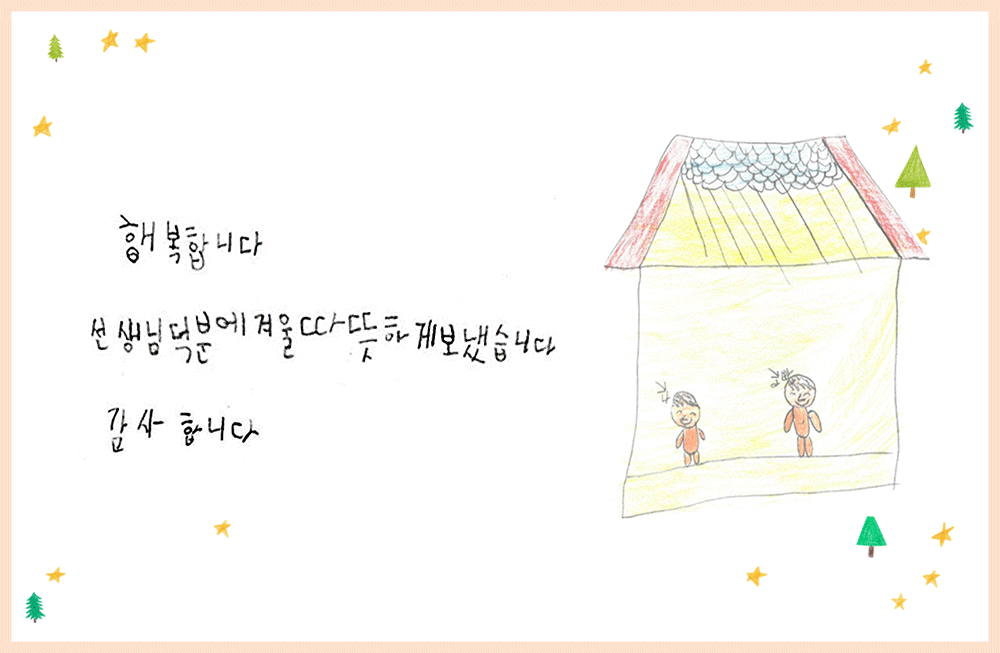 행복합니다
선생님덕분에겨울따뜻하게보냈습니다
감사 합니다